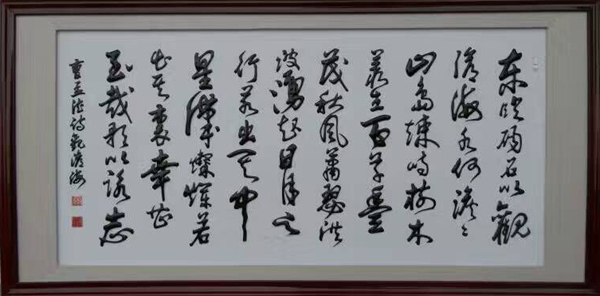 东临碣石以觀
滄海水何澹々
山島竦峙樹木
叢生百草豐
茂秋風蕭瑟洪
波湧起日月之
行若出其中
星漢燦爛若
出其裏幸甚
至哉歌以詠志
曹孟德詩觀滄海